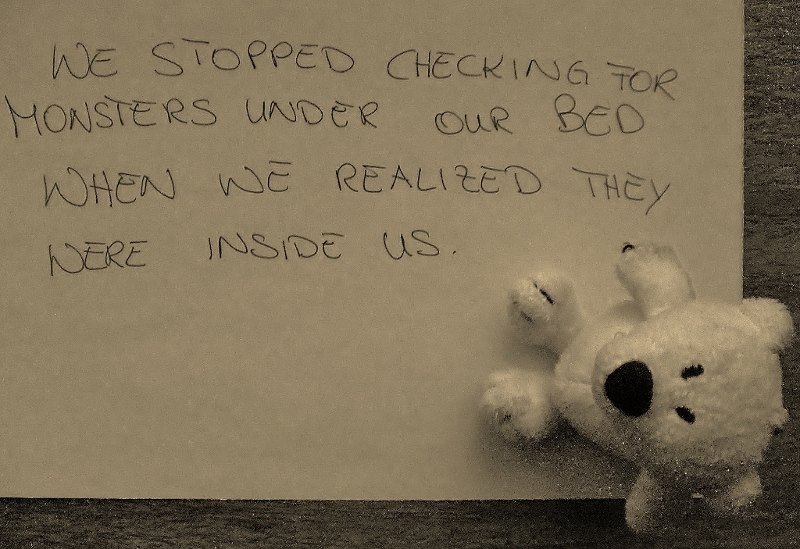 WE STOPPED CHECKING FOR
MONSTERS UNDER OUR BED
WHEN WE REALIZED THEY
WERE INSIDE US.